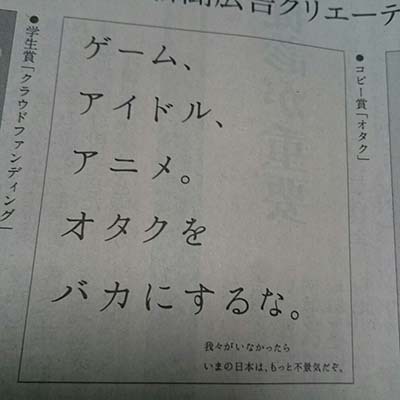 聞広告クリエーテ
コピー賞「オタク」
ゲーム、
アイドル、
アニメ。
オタクを
バカにするな。
我々がいなかったら
いまの日本は、もっと不景気だぞ。
学生賞「クラウドファンディング」